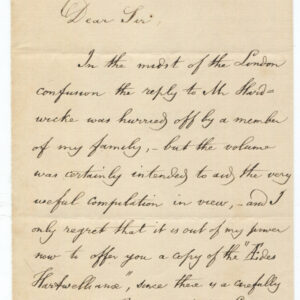 Dear Sir,
In the midst of the London
confusion the reply to Mr Hard-
wicke was hurried off by a member
of my family, - but the volume
was certainly intended to aid the very
useful compilation in view, - and I
only regret that it is out of my power
now to offer you a copy of the "Ædes
Hartwellianæ", since there is a carefully